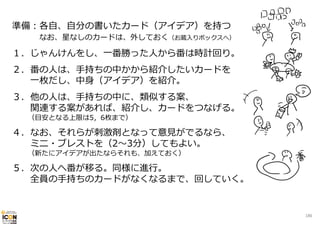 準備：各自、自分の書いたカード（アイデア）を持つ
なお、星なしのカードは、外しておく（お蔵入りボックスへ）
１．じゃんけんをし、一番勝った人から番は時計回り。
２．番の人は、手持ちの中かから紹介したいカードを
一枚だし、中身（アイデア）を紹介。
３．他の人は、手持ちの中に、類似する案、
関連する案があれば、紹介し、カードをつなげる。
（目安となる上限は5，6枚まで）
４．なお、それらが刺激剤となって意見がでるなら、
ミニ・ブレストを（2～3分）してもよい。
（新たにアイデアが出たならそれも、加えておく）
５．次の人へ番が移る。同様に進行。
全員の手持ちのカードがなくなるまで、回していく。